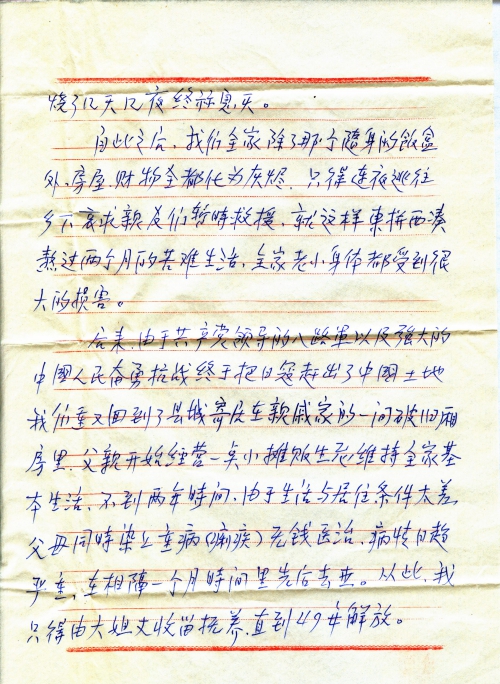 烧了12天12夜终于息灭。
自此之后，我们全家除了那个随身的饭盒
外，房屋财物全都化为灰烬．只得连夜逃往
乡下哀求亲友们暂時救援，就这样東拼西凑
熬过两个月的苦难生活，全家老小身体都受到很
大的损害。
后来，由于共产党领导的八路軍以及强大的
中國人民奋勇抗战终于把日寇赶出了中國土地
我们重又回到了县城寄居在親戚家的一间破旧厢
房里．父親开始经营一点小摊贩生意维持全家基
本生活．不到两年時间，由于生活与居住条件太差
父母同時染上重病（痢疾）无钱医治，病情日趋
严重，在相隔一个月時间里先后去世。从此，我
只得由大姐丈收留抚养，直到49年解放。